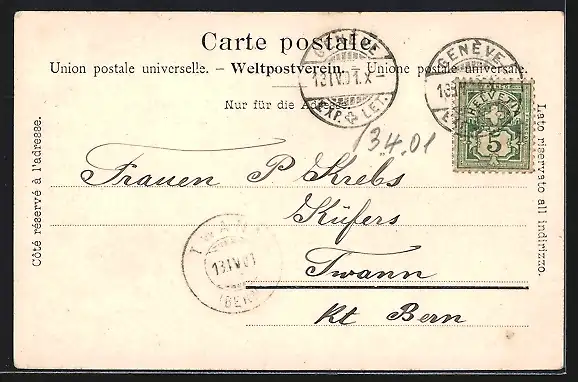 Carte postale.
Union postale universelle. – Weltpostverein – Unione postale universale.
Nur für die Adresse.
GENÈVE
13.IV.01.X
EXP. LET.
GENÈVE
EXP. LET.
HELVETIA
5
13.4.01
Côté réservé à l'adresse.
Lato riservato all indirizzo.
Frauen P Krebs
Küfers
Twann
Kt Bern
TWANN
13.IV.01
(BERN)